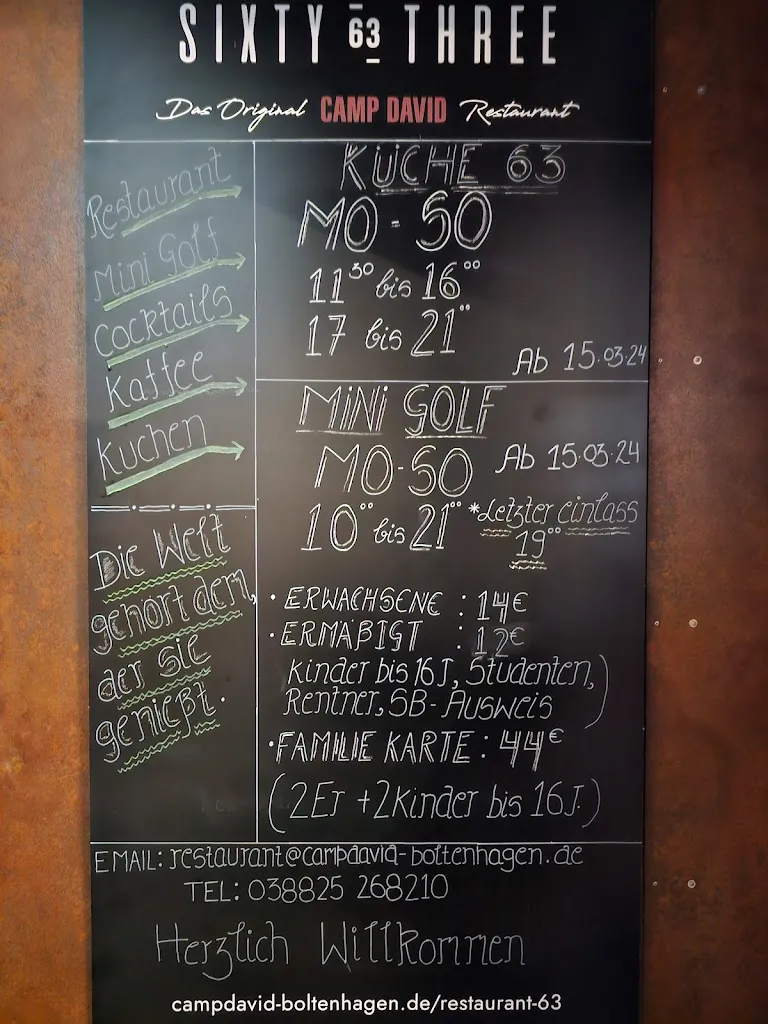 SIXTY 63 THREE
Das Original CAMP DAVID Restaurant
Restaurant
Mini Golf
Cocktails
Kaffee
Kuchen
Die Welt
gehört dem,
der sie
genießt.
KÜCHE 63
MO - SO
11³⁰ bis 16⁰⁰
17 bis 21⁰⁰
Ab 15.03.24
MINI GOLF
MO-SO
Ab 15.03.24
10⁰⁰ bis 21⁰⁰
*Letzter einlass
19⁰⁰
• ERWACHSENE : 14€
• ERMÄßIGT : 12€
Kinder bis 16 J, Studenten,
Rentner, SB-Ausweis)
• FAMILIE KARTE : 44€
(2Er + 2Kinder bis 16J.)
EMAIL: restaurant@campdavid-boltenhagen.de
TEL: 038825 268210
Herzlich Willkommen
campdavid-boltenhagen.de/restaurant-63